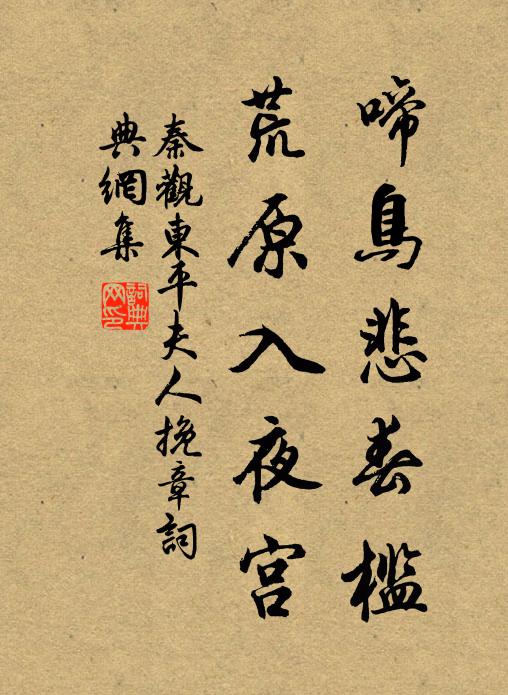 啼鳥悲春檻
荒原入夜宮
秦觀東平夫人挽章詞
典網集
詞典
网印